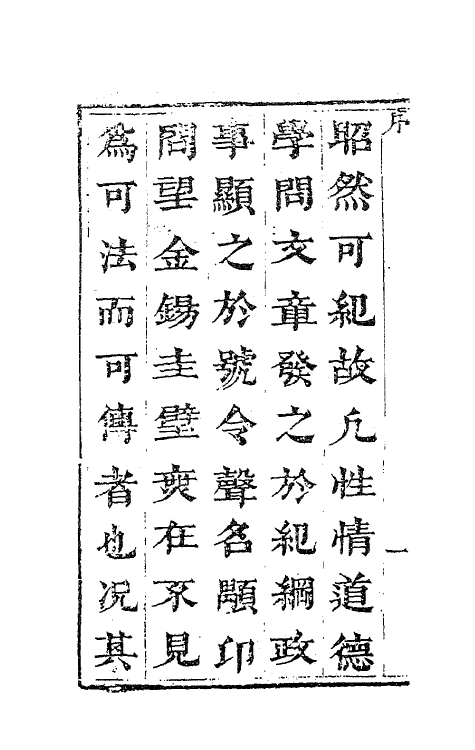 序
昭然可紀故凡性情道德
學問文章發之於紀綱政
事顯之於號令聲名顒卬
問望金錫圭璧奭在不見
為可法而可傳者也況其
一